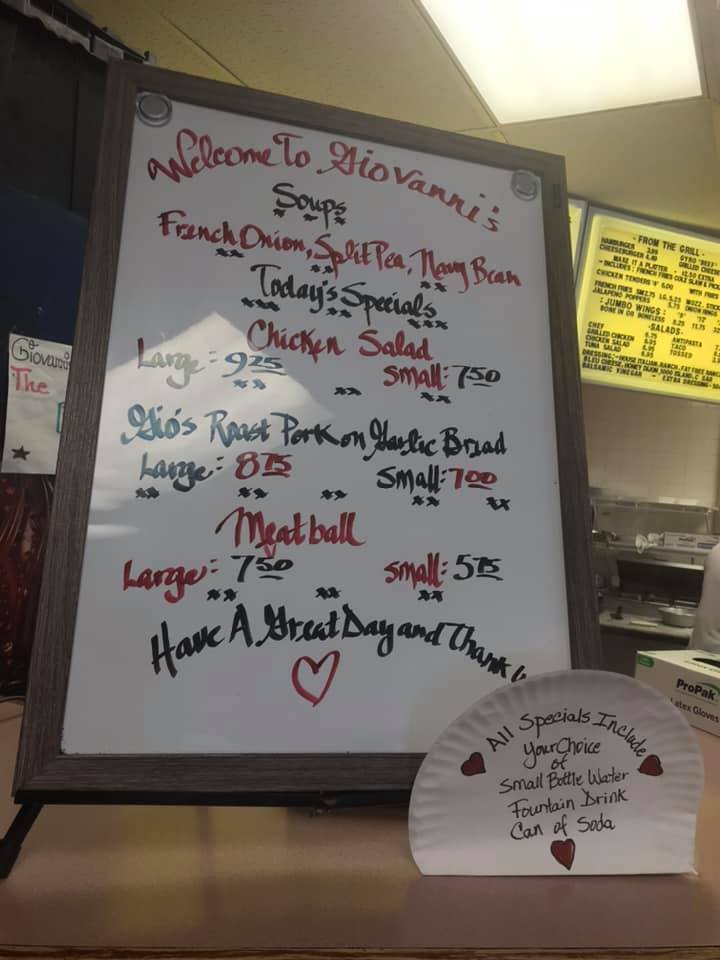 Welcome To Giovanni's
Soups
French Onion, Split Pea, Navy Bean
Today's Specials
Chicken Salad
Large: 9 25 Small: 7 50
Gio's Roast Pork on Garlic Bread
Large: 8 75 Small: 7 00
Meatball
Large: 7 50 Small: 5 75
Have A Great Day and Thank
All Specials Include
Your Choice
of
Small Bottle Water
Fountain Drink
Can of Soda
Giovanni
The
- FROM THE GRILL -
HAMBURGER
CHEESEBURGER
MAKE IT A PLATTER
CHICKEN TENDERS
JALAPENO POPPERS
: JUMBO WINGS :
BONE IN OR BONELESS
-SALADS-
CHEF
GRILLED CHICKEN
CHICKEN SALAD
TUNA SALAD
ANTIPASTA
TACO
TOSSED
BALSAMIC VINEGAR - EXTRA DRESSING
ProPak
Latex Gloves